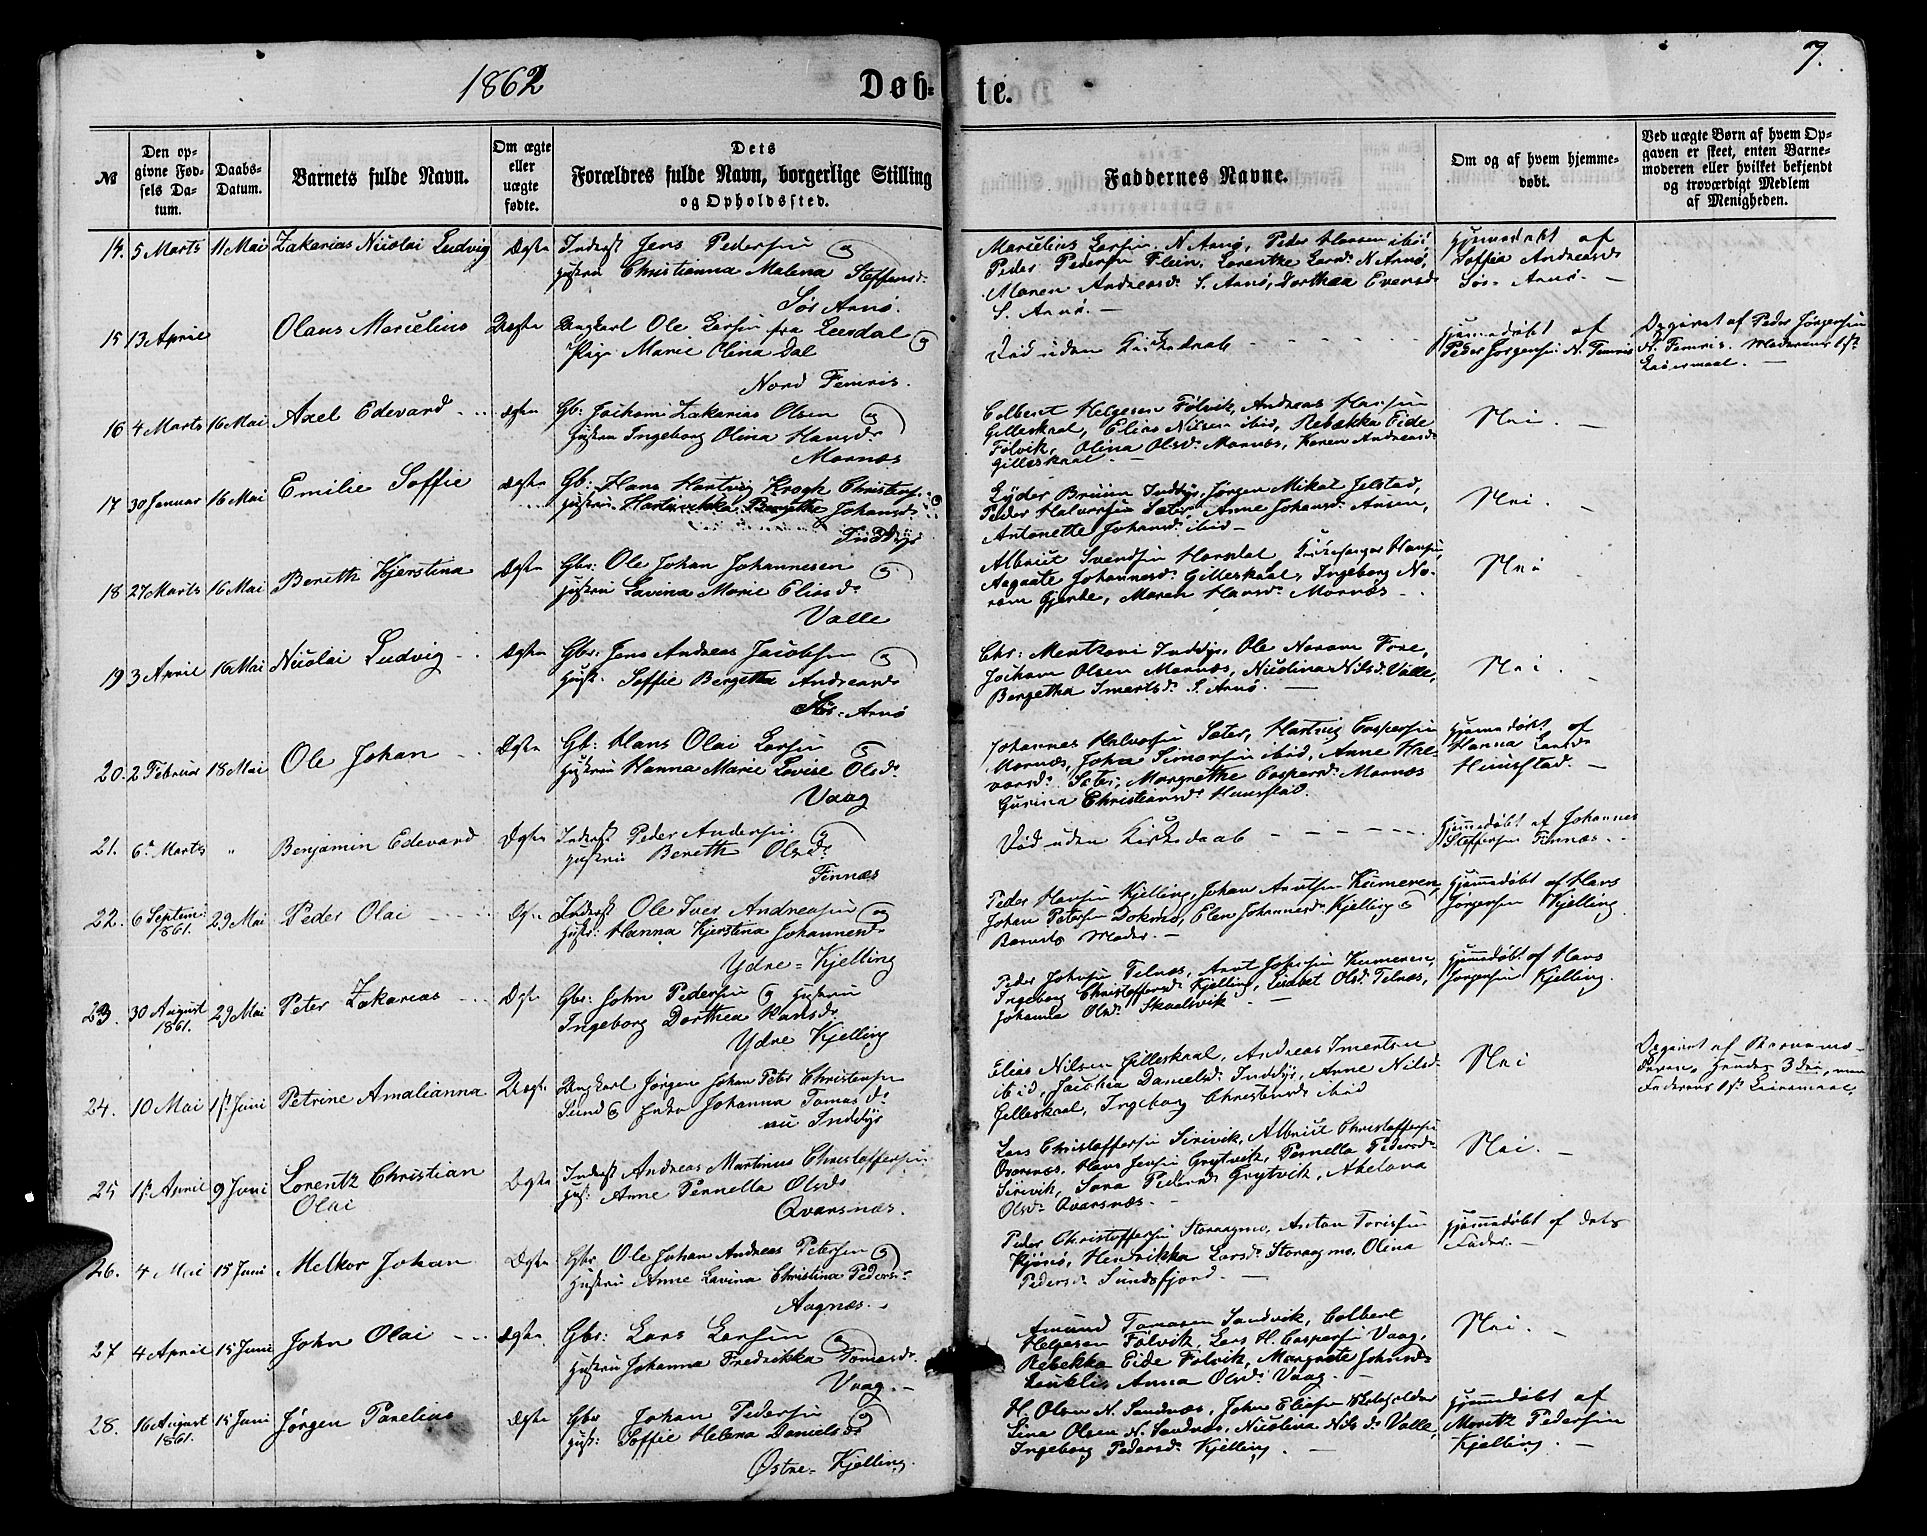 1862
Døb=
te.
7.
№
Den op-
givne Fød-
sels Da-
tum.
Daabs-
Datum.
Barnets fulde Navn.
Om ægte
eller
uægte
fødte.
Dets
Forældres fulde Navn, borgerlige Stilling
og Opholdssted.
Faddernes Navne.
Om og af hvem hjemme-
døbt.
Ved uægte Børn af hvem Op-
gaven er skeet, enten Barne-
moderen eller hvilket bekjendt
og troværdigt Medlem
af Menigheden.
14. 5 Marts 11 Mai Zakarias Nicolai Ludvig Ægte Inderst Jens Pedersen og
Hustru Christianna Malena Steffensd.
Sør Arnø.
Marcelius Larsen N. Arnø, Peder Hansen ibid
Peder Pedersen Flein, Lorentze Larsd. N Arnø,
Maren Andreasd. S. Arnø, Dorthea Evensd.
S. Arnø. —
Hjemmedøbt af
Soffia Andreasd.
Sør-Arnø. —
15 13 April Olaus Marcelius Uægte Ungkarl Ole Larsen fra Leerdal og
Pige Marie Olina Dal
Nord Femris.
Død uden Kirkedaab
Hjemmedøbt af
Peder Jørgensen N. Femris
Opgivet af Peder Jørgensen
N. Femris. Moderens 1ste
Leiermaal. —
16 4 Marts 16 Mai Axel Edevard Ægte Gb: Jochom Zakarias Olsen og
Hustru Ingeborg Olina Hansd.
Marnæs
Colbent Helgesen Følvik, Andreas Hansen
Gilleskaal, Elias Nilsen ibid, Rebekka Eide
Følvik, Olina Olsd. Marnæs, Karen Andreasd.
Gilleskaal. —
Nei. —
17 30 Januar 16 Mai Emilie Soffie Ægte Gb: Hans Hartvig Krogh Christens. og
Hustru Hartvikka Bergitha Johansd.
Inddyr
Lyder Bruun Inddyr, Jørgen Mikal Jelstad,
Peder Halvorsen Sæter, Anne Johansd. Ausen,
Antonette Johansd. ibid —
Nei. —
18 27 Marts 16 Mai Bereth Kjerstina Ægte Gbr: Ole Johan Johannesen og
Hustru Lavina Marie Eliasd.
Valle
Albrict Svendsen Horsdal, Kirkesanger Hansen,
Aagaate Johannesd. Gilleskaal, Ingeborg No-
rum Gjerde, Maren Hansd. Marnæs
Nei
19 3 April 16 Mai Nicolai Ludvig Ægte Gbr: Jens Andreas Jacobsen og
Hust. Soffie Bergetha Andreasd.
Sør-Arnø
Chr: Mentzoni Inddyr, Ole Norum Fore,
Jochom Olsen Marnæs, Nicolina Nilsd. Valle,
Bergetha Imertsd. S. Arnø. —
Nei
20. 2 Februar 18 Mai Ole Johan Ægte Gb: Hans Olai Larsen og
Hustru Hanna Marie Lovise Olsd.
Vaag
Johannes Halvorsen Sæter, Hartvig Caspersen
Marnæs, John Simonsen ibid, Anne Hal-
vorsd. Sæter, Margrethe Caspersd. Marnæs
Gurina Christiansd. Hunstad.
Hjemmedøbt af
Hanna Larsd.
Hunstad. —
21. 6te Marts " Benjamin Edevard Ægte Inderst Peder Andersen og
Hustru Bereth Olsd.
Finnæs
Død uden Kirkedaab
Hjemmedøbt af Johannes
Steffensen Finnæs. —
22. 6 Septem:
1861. 29 Mai Peder Olai Ægte Inderst Ole Iver Andreasen og
Hustr: Hanna Kjerstina Johannesd.
Ydre=Kjelling
Peder Hansen Kjelling, Johan Arntsen Kumeren,
Johan Petersen Dokmo, Elen Johannesd. Kjelling og
Barnets Moder. —
Hjemmedøbt af Hans
Jørgensen Kjelling.
23. 30 August
1861. 29 Mai Peter Zakarias Ægte Gbr: John Pedersen og Hustru
Ingeborg Dorthea Hansd.
Ydre Kjelling
Peder Johnsen Telnæs, Arnt Johnsen Kumeren,
Ingeborg Christoffersd. Kjelling, Lisabet Olsd. Telnæs,
Johanna Olsd. Skaalsvik —
Hjemmedøbt af Hans
Jørgensen Kjelling.
24. 10 Mai 1ste Juni Petrine Amalianna Uægte Ungkarl Jørgen Johan Peter Christensen
Sund og Enke Johanna Tomasd.
Inddyr
Elias Nilsen Gilleskaal, Andreas Imertsen
ibid, Jacobia Danielsd. Inddyr, Anne Nilsd.
Gilleskaal, Ingeborg Christensd. ibid
Nei
Opgivet af Barnemo-
deren, hendes 3die, men
Faderens 1ste Leiermaal.
25 1ste April 9 Juni Lorentz Christian
Olai Ægte Inderst Andreas Martinus Christoffersen
Hus: Anne Pernella Olsd.
Qvarsnæs.
Lars Christoffersen Sørivik, Albrict Christoffersen
Qvarsnæs, Hans Jensen Grytvik, Pernella Pedersd.
Sørivik, Sara Pedersd. Grytvik, Abelona
Olsd. Qvarsnæs. —
Nei. —
26. 4 Mai 15 Juni Melkor Johan Ægte Gbr. Ole Johan Andreas Petersen og
Hustru Anne Lavina Christina Pedersd.
Aagnæs. —
Peder Christoffersen Storaagmo, Anton Torissen
Henrikka Larsd. Storaagmo, Olina
Pedersd. Sundsfjord. —
Hjemmedøbt af dets
Fader. —
27 4 April 15 Juni John Olai Ægte Gbr: Lars Larsen og
Hustru Johanna Fredrikka Tomasd.
Vaag. —
Amund Tomasen Sandvik, Colbent
Helgesen Følvik, Lars H. Caspersen Vaag,
Rebekka Eide Følvik, Margrete Johnsd.
Anna Olsd. Vaag. —
Nei. —
28. 16 August
1861. 15 Juni Jørgen Parelius Ægte Gbr. Johan Pedersen og
Hust: Soffie Helena Danielsd.
Østre=Kjelling
H. Olsen N. Sandnæs, John Eliasen
Lina Olsen N. Sandnæs, Nicolina Nilsd. Valle,
Ingeborg Pedersd. Kjelling. —
Hjemmedøbt af
Moritz Pedersen
Kjelling. —